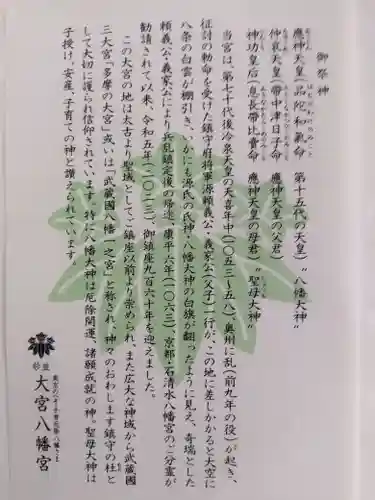 御祭神
應神天皇(品陀和氣命 第十五代の天皇)〝八幡大神〟
仲哀天皇(帶中津日子命 應神天皇の父君)
神功皇后(息長帶比賣命 應神天皇の母君)〝聖母大神〟
当宮は、第七十代後冷泉天皇の天喜年中(一〇五三~五八)奥州に乱(前九年の役)が起き、
征討の勅命を受けた鎮守府将軍源頼義公・義家公(父子)一行が、この地に差しかかると大空に
八条の白雲が棚引き、いかにも源氏の氏神・八幡大神の白旗が翻ったように見え、奇瑞とした
頼義公・義家公により兵乱鎮定後の帰途、康平六年(一〇六三)、京都・石清水八幡宮のご分霊が
勧請されて以来、令和五年(二〇二三)、御鎮座九百六十年を迎えました。
この大宮の地は太古より聖域としてご鎮座以前より崇められ、また広大な神域から武蔵國
三大宮「多摩の大宮」或いは「武蔵國八幡一之宮」と称され、神々のおわします鎮守の杜と
して大切に護られ信仰されています。特に八幡大神は厄除開運、諸願成就の神。聖母大神は
子授け、安産、子育ての神と讃えられています。
東京のへそ子育厄除八幡さま
大宮八幡宮